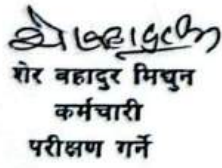 शेर बहादुर मिथुन
कर्मचारी
परीक्षण गर्ने